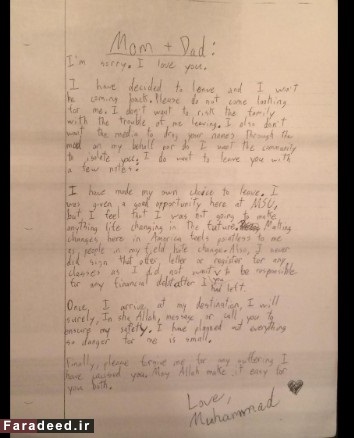 Mom + Dad:
I'm sorry. I love you.
I have decided to leave and I won't
be coming back. Please do not come looking
for me. I don't want to risk the family
with the trouble of me leaving. I also don't
want the media to drag your names through the
mud on my behalf nor do I want the community
to isolate you. I do want to leave you with
a few notes:
I have made my own choice to leave. I
was given a good opportunity here at MSU,
but I feel that I was not going to make
anything life changing in the future. Making
changes here in America feels pointless to me
as people in my field hate change. Also, I never
did sign that offer letter or register for any
classes as I did not want to be responsible
for any financial debt after I had left.
Once I arrive at my destination, I will
surely, In sha Allah, message or call you to
ensure my safety. I have planned out everything
so danger for me is small.
Finally, please forgive me for any suffering I
have caused you. May Allah make it easy for
you both.
Love,
Muhammad
Faradeed.ir
Faradeed.ir